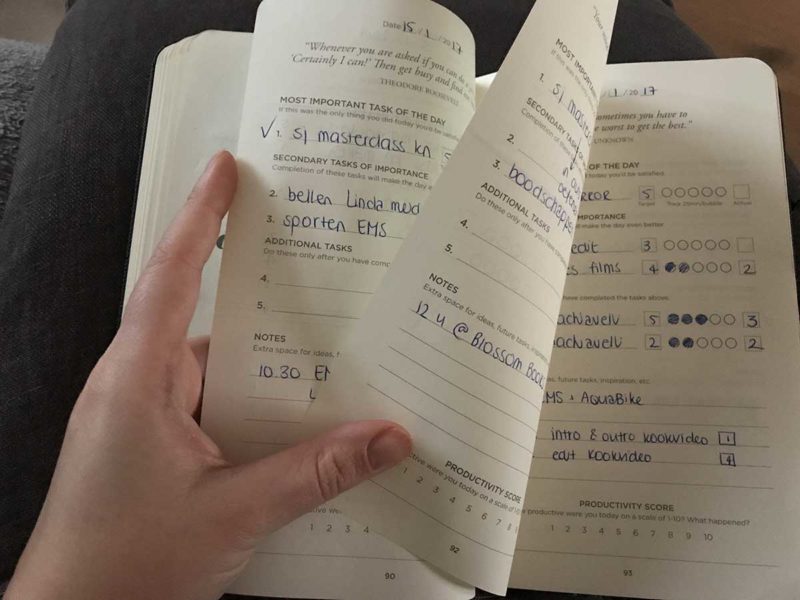 Date 15 / 1 / 20 17
"Whenever you are asked if you can do a
'Certainly I can!' Then get busy and find
THEODORE ROOSEVELT
MOST IMPORTANT TASK OF THE DAY
If this was the only thing you did today you'd be satisfied
1. SJ masterclass KN
SECONDARY TASKS OF IMPORTANCE
Completion of these tasks will make the day
2. bellen Linda
3. sporten EMS
ADDITIONAL TASKS
Do these only after you have
4.
5.
NOTES
Extra space for ideas,
10.30
1 2 3 4
90
"Your
MOST IMPORTANT
If this was the
1. SJ
SECONDARY
Completion of
2.
3. boodschappen
ADDITIONAL TASKS
Do these only after you have
4.
5.
NOTES
Extra space for ideas, future tasks,
12 u @ Blossom Book
PRODUCTIVITY SCORE
were you today on a scale of
1 2 3 4 5 6 7 8
92
/ 1 / 20 17
you have to
worst to get the best."
UNKNOWN
OF THE DAY
today you'd be satisfied.
5
Target Track 25min/bubble Actual
IMPORTANCE
make the day even better
edit 3
films 4 2
have completed the tasks above.
5 3
2 2
future tasks, inspiration, etc.
EMS + AquaBike
intro & outro kookvideo 1
edit kookvideo 4
PRODUCTIVITY SCORE
productive were you today on a scale of 1-10? What happened?
1 2 3 4 5 6 7 8 9 10
93